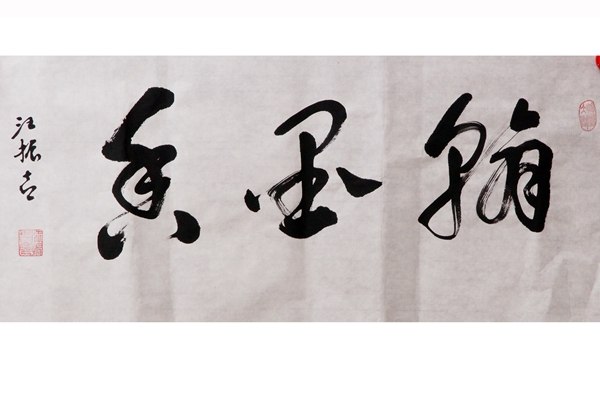 翰墨香
江振